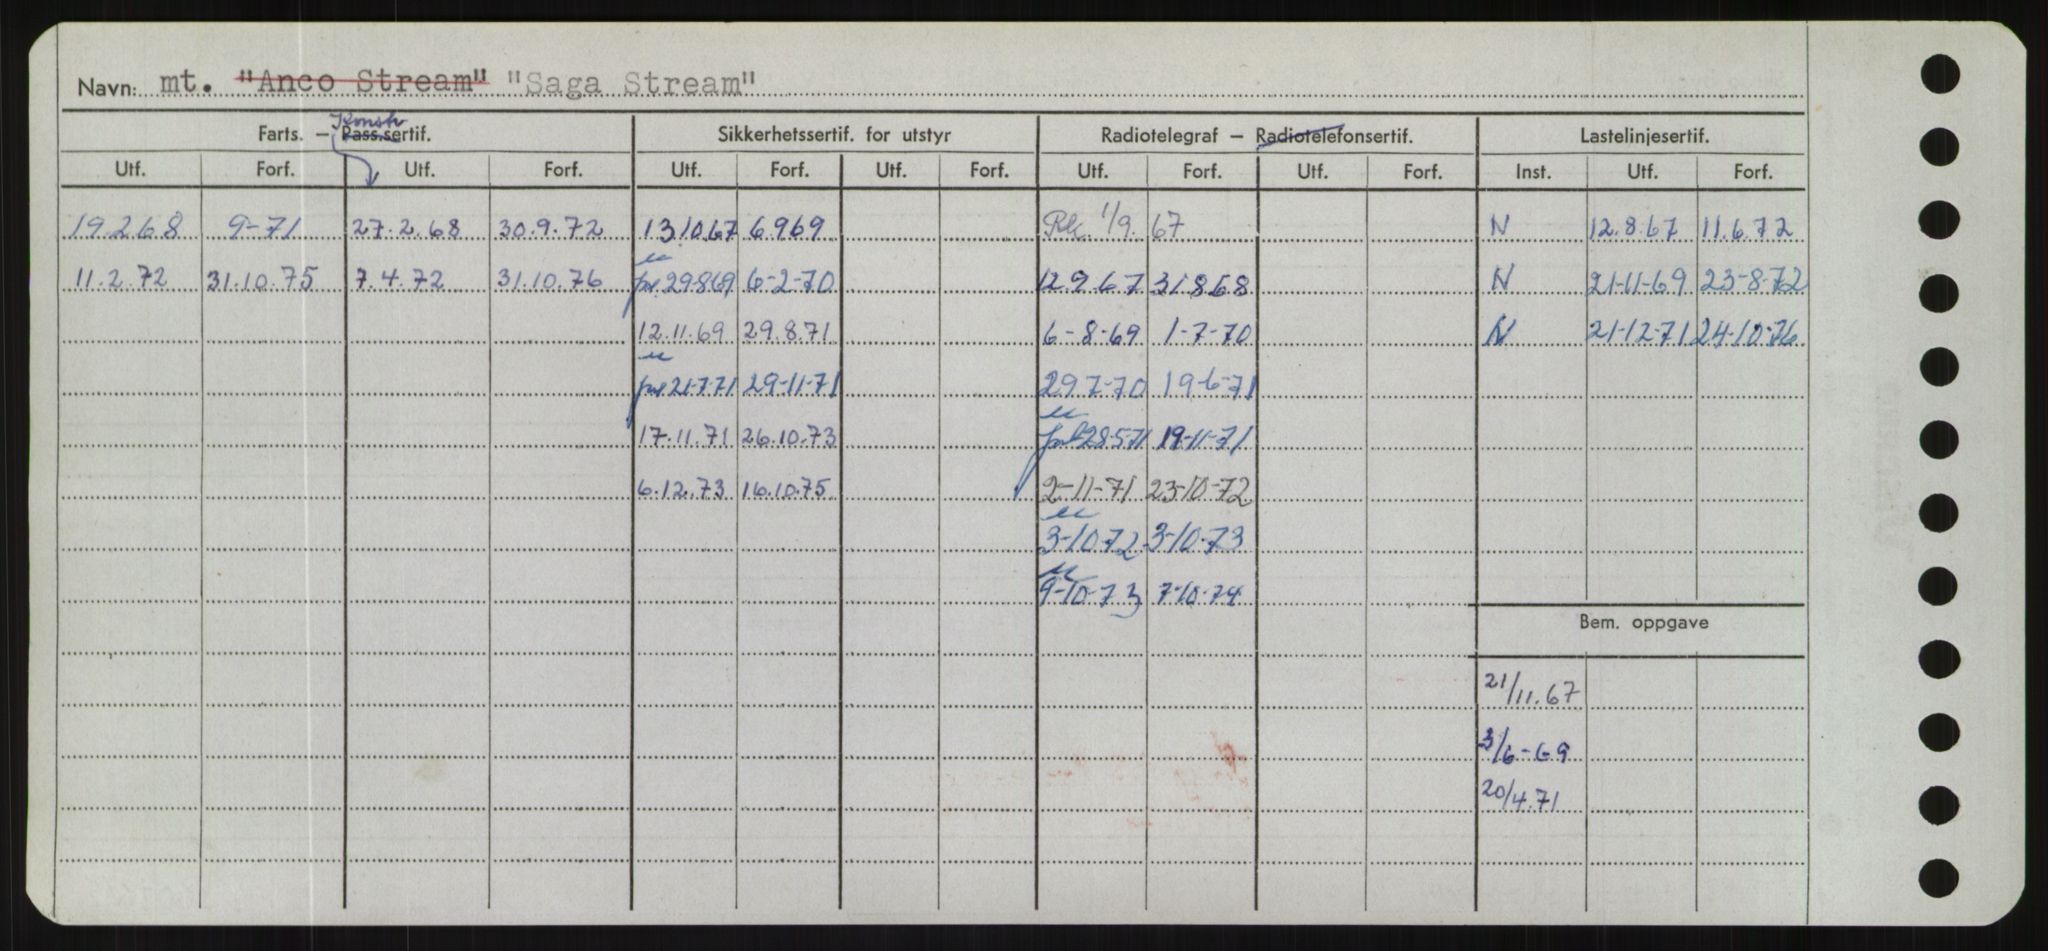 Navn: mt. "Anco Stream" "Saga Stream"
Konstr
Farts. — Pass.sertif. Sikkerhetssertif. for utstyr Radiotelegraf — Radiotelefonsertif. Lastelinjesertif.
Utf. Forf. Utf. Forf. Utf. Forf. Utf. Forf. Utf. Forf. Utf. Forf. Inst. Utf. Forf.
19.2.68 9-71 27.2.68 30.9.72 13.10.67 6.9.69 1/9. 67 N 12.8.67 11.6.72
11.2.72 31.10.75 7.4.72 31.10.76 29.8.69 6-2-70 12.9.67 31.8.68 N 21-11-69 23-8-72
12.11.69 29.8.71 6-8-69 1-7-70 N 21-12-71 24-10-76
21-7-71 29-11-71 29.7-70 19-6-71
17.11.71 26.10.73 28-5-71 19-11-71
6.12.73 16.10.75 2-11-71 23-10-72
3-10-72 3-10-73
9-10-73 7-10-74
Bem. oppgave
21/11.67
3/6-69
20/4.71